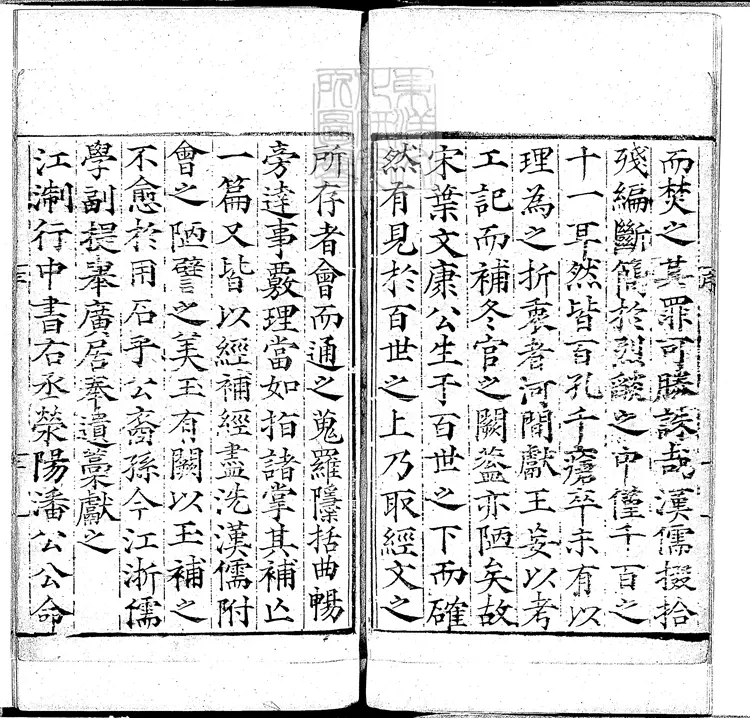 而焚之其罪可勝誅哉漢儒掇拾
殘編斷簡於烈燄之中僅千百之
十一耳然皆百孔千瘡卒未有以
理為之折衷者河間獻王妄以考
工記而補冬官之闕蓋亦陋矣故
宋葉文康公生于百世之下而確
然有見於百世之上乃取經文之
所存者會而通之蒐羅隱括曲暢
旁達事覈理當如指諸掌其補亾
一篇又皆以經補經盡洗漢儒附
會之陋譬之美玉有闕以玉補之
不愈於用石乎公裔孫今江浙儒
學副提舉廣居奉遺藁獻之
江淛行中書右丞榮陽潘公公命
序